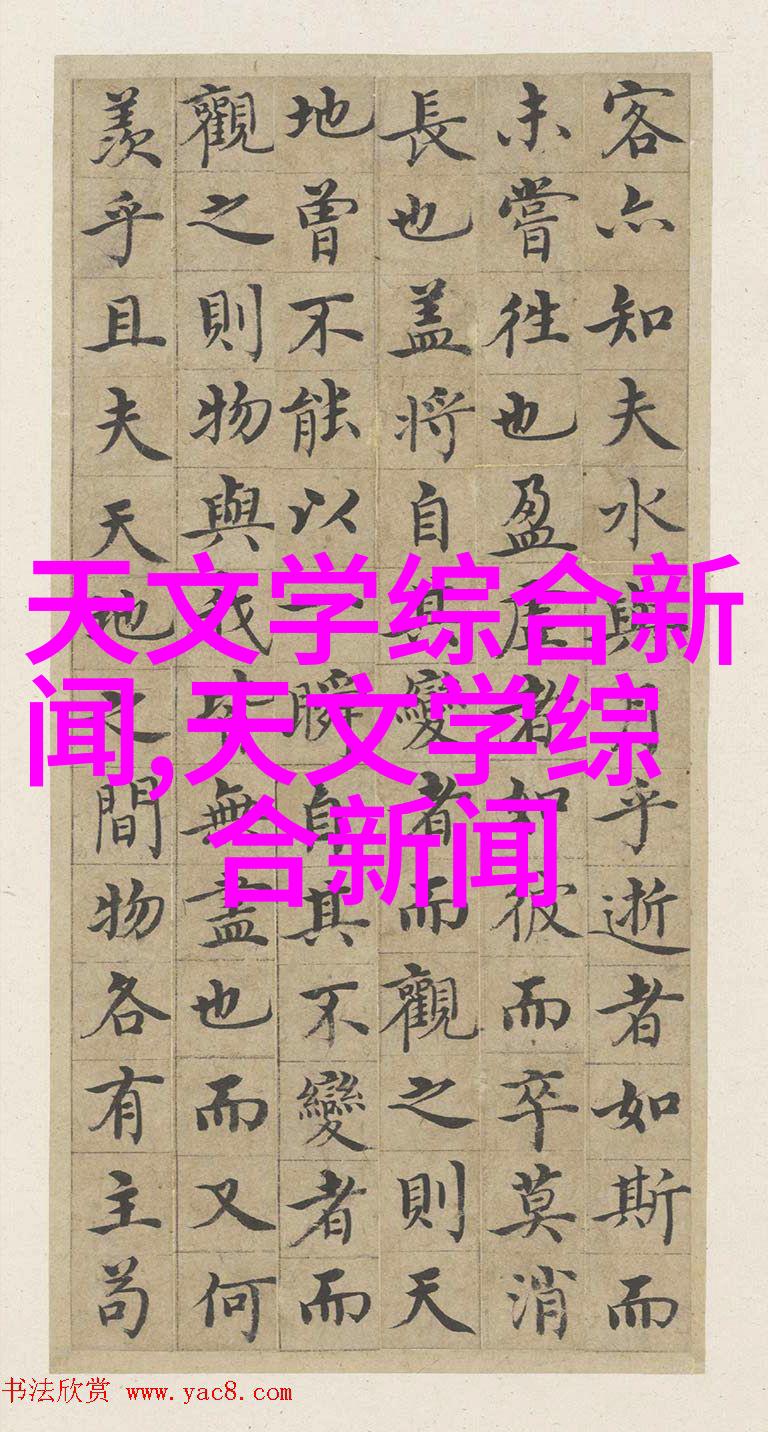 客亦知夫水與月乎逝者如斯而
未嘗徃也盈虛者如彼而卒莫消
長也盖將自其變者而觀之則天
地曾不能以一瞬自其不變者而
觀之則物與我皆無盡也而又何
羨乎且夫天地之間物各有主苟
天文学综合新
闻,天文学综
合新闻
书法欣赏 www.yac8.com